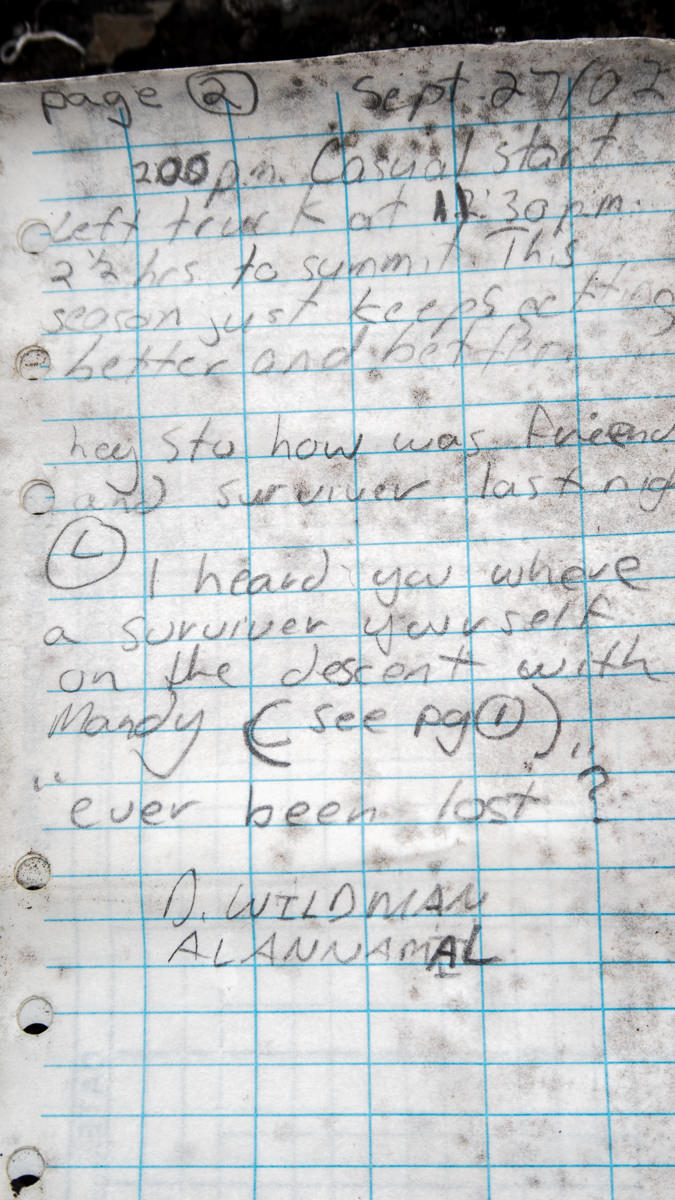 page ② Sept. 27/02
200 p.m. Casual start
Left truck at 12:30 p.m.
2 1/2 hrs. to summit. This
season just keeps getting
better and better.
hey Stu how was friend
and surviver last nig
I heard you where
a surviver yourself
on the descent with
Mandy (see pg ①),
"ever been lost"?
D. WILDMAN